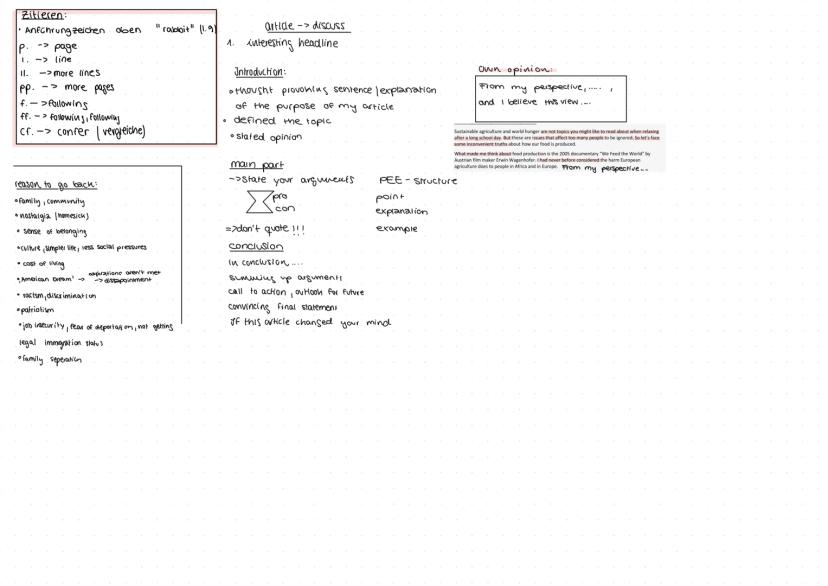 Zitieren:
• Anführungzeichen oben "rabbit" (l.9)
p. -> page
l. -> line
ll. -> more lines
pp. -> more pages
f. -> following
ff. -> following, following
cf. -> confer (vergleiche)
reason to go back:
• family, community
• nostalgia (homesick)
• sense of belonging
• culture, simpler life, less social pressures
• cost of living
• "American Dream" -> aspirations aren't met
-> dissapoinment
• racism, discrimination
• patriotism
• job insecurity, fear of deportation, not getting
legal immigration status
• family seperation
article -> discuss
1. interesting headline
Introduction:
• thought provoking sentence/explanation
of the purpose of my article
• defined the topic
• stated opinion
main part
-> State your arguments
pro
con
=> don't quote !!!
PEE - structure
point
explanation
example
conclusion
in conclusion ....
summing up arguments
call to action, outlook for future
convincing final statement
If this article changed your mind
Own opinion:
From my perspective, ..... ,
and I believe this view....
Sustainable agriculture and world hunger are not topics you might like to read about when relaxing
after a long school day. But these are issues that affect too many people to be ignored. So let's face
some inconvenient truths about how our food is produced.
What made me think about food production is the 2005 documentary "We Feed the World" by
Austrian film maker Erwin Wagenhofer. I had never before considered the harm European
agriculture does to people in Africa and in Europe. From my perspective...